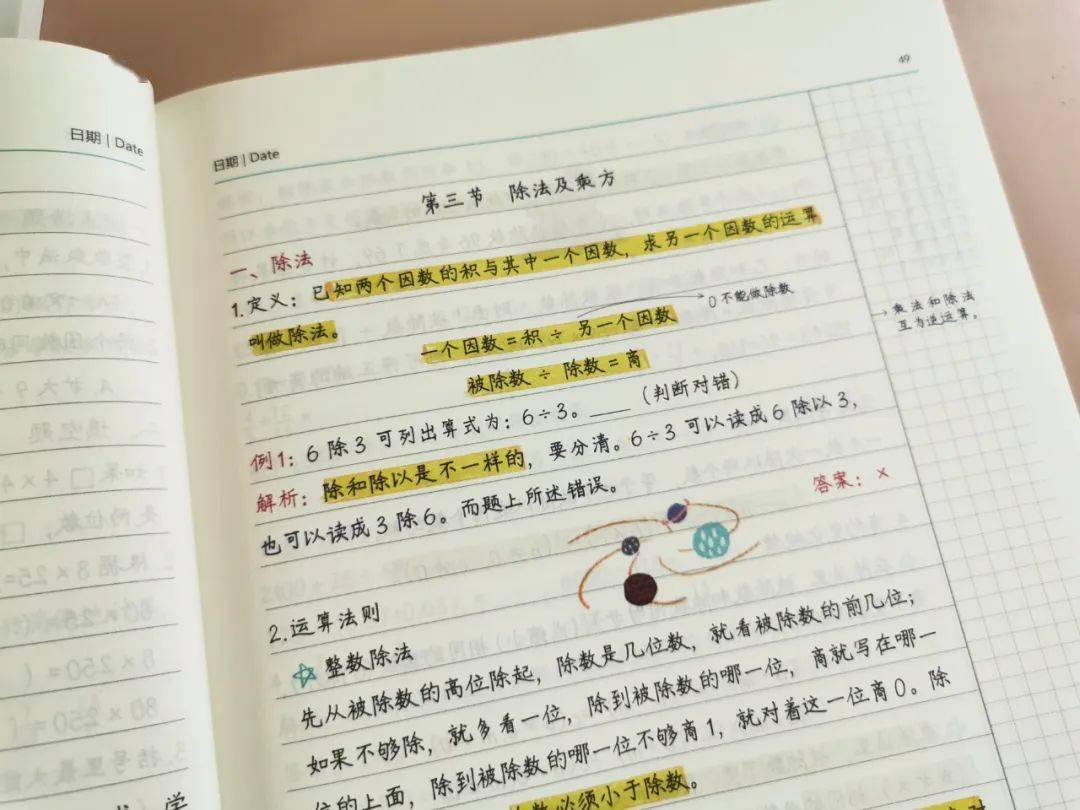 日期 | Date
49
日期 | Date
第三节 除法及乘方
一、除法
1.定义：已知两个因数的积与其中一个因数，求另一个因数的运算
叫做除法。
0不能做除数
乘法和除法
互为逆运算。
一个因数=积÷另一个因数
被除数÷除数=商
例1：6除3可列出算式为：6÷3。____（判断对错）
解析：除和除以是不一样的，要分清。6÷3可以读成6除以3，
也可以读成3除6。而题上所述错误。
答案：×
2.运算法则
☆ 整数除法
先从被除数的高位除起，除数是几位数，就看被除数的前几位；
如果不够除，就多看一位，除到被除数的哪一位，商就写在哪一
位的上面，除到被除数的哪一位不够商1，就对着这一位商0。除
数必须小于除数。